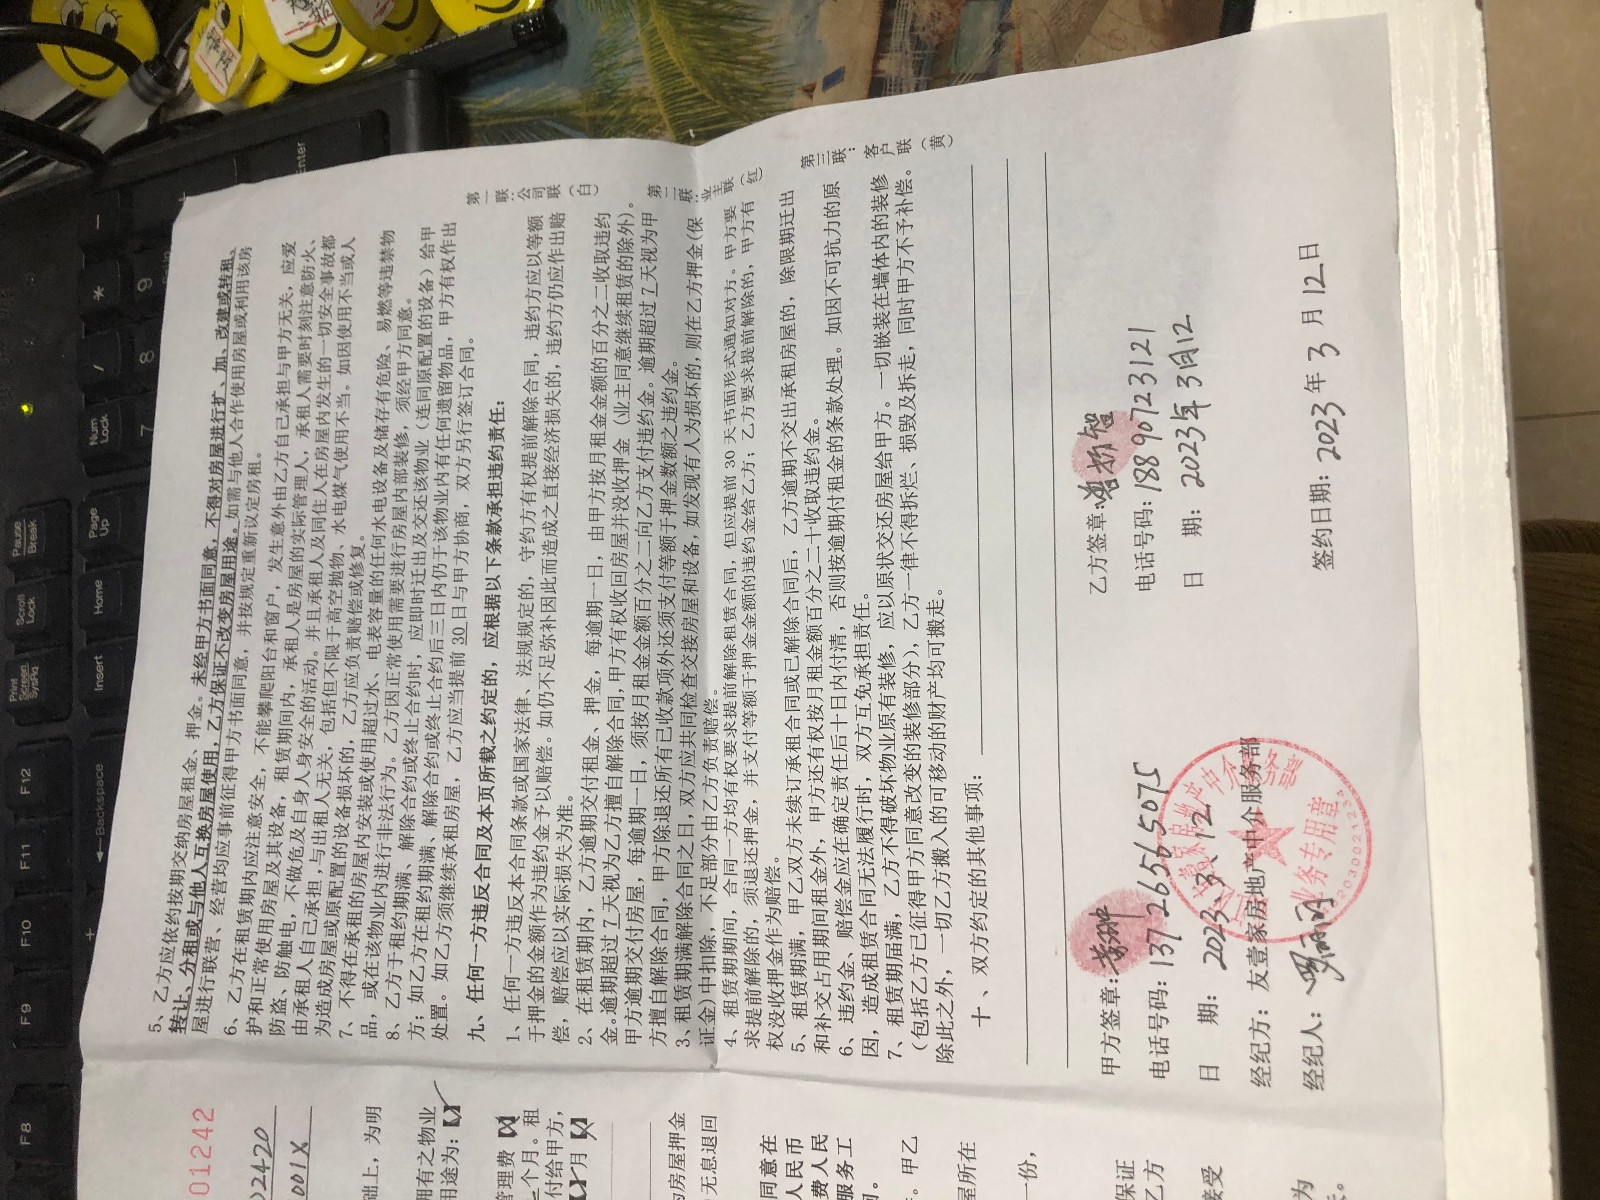 5、乙方应依约按期交纳房屋租金、押金。未经甲方书面同意，不得对房屋进行扩、加、改建或转租、
转让、分租或与他人互换房屋使用，乙方保证不改变房屋用途。如需与他人合作使用房屋或利用该房
屋进行联营、经营均应事前征得甲方书面同意，并按规定重新议定房租。
6、乙方在租赁期内应注意安全，不能攀爬阳台和窗户，发生意外由乙方自己承担与甲方无关，应爱
护和正常使用房屋及其设备，租赁期间内，承租人是房屋的实际管理人，承租人需要时刻注意防火、
防盗、防触电，不做危及自身人身安全的活动。并且承租人及同住人在房屋内发生的一切安全事故都
由承租人自己承担，与出租人无关，包括但不限于高空抛物、水电煤气使用不当。如因使用不当或人
为造成房屋或原配置的设备损坏的，乙方应负责赔偿或修复。
7、不得在承租的房屋内安装或使用超过水、电表容量的任何水电设备及储存有危险、易燃等违禁物
品，或在该物业内进行非法行为。乙方因正常使用需要进行房屋内部装修，须经甲方同意。
8、乙方于租约期满、解除合约或终止合约时，应即时迁出及交还该物业（连同原配置的设备）给甲
方；如乙方在租约期满、解除合约或终止合约后三日内仍于该物业内有任何遗留物品，甲方有权作出
处置。如乙方须继续承租房屋，乙方应当提前 30 日与甲方协商，双方另行签订合同。
九、任何一方违反合同及本页所载之约定的，应根据以下条款承担违约责任：
1、任何一方违反本合同条款或国家法律、法规规定的，守约方有权提前解除合同，违约方应以等额
于押金的金额作为违约金予以赔偿。如仍不足弥补因此而造成之直接经济损失的，违约方仍应作出赔
偿，赔偿应以实际损失为准。
2、在租赁期内，乙方逾期交付租金、押金，每逾期一日，由甲方按月租金金额的百分之二收取违约
金,逾期超过 7 天视为乙方擅自解除合同,甲方有权收回房屋并没收押金（业主同意继续租赁的除外）。
甲方逾期交付房屋，每逾期一日，须按月租金金额百分之二向乙方支付违约金。逾期超过 7 天视为甲
方擅自解除合同，甲方除退还所有已收款项外还须支付等额于押金数额之违约金。
3、租赁期满解除合同之日，双方应共同检查交接房屋和设备，如发现有人为损坏的,则在乙方押金(保
证金)中扣除，不足部分由乙方负责赔偿。
4、租赁期期间，合同一方均有权要求提前解除租赁合同，但应提前 30 天书面形式通知对方。甲方要
求提前解除的，须退还押金，并支付等额于押金金额的违约金给乙方；乙方要求提前解除的，甲方有
权没收押金作为赔偿。
5、租赁期满，甲乙双方未续订承租合同或已解除合同后，乙方逾期不交出承租房屋的，除限期迁出
和补交占用期间租金外，甲方还有权按月租金额百分之二十收取违约金。
6、违约金、赔偿金应在确定责任后十日内付清，否则按逾期付租金的条款处理。如因不可抗力的原
因，造成租赁合同无法履行时，双方互免承担责任。
7、租赁期届满，乙方不得破坏物业原有装修，应以原状交还房屋给甲方。一切嵌装在墙体内的装修
（包括乙方已征得甲方同意改变的装修部分），乙方一律不得拆烂、损毁及拆走，同时甲方不予补偿。
除此之外，一切乙方搬入的可移动的财产均可搬走。
十、双方约定的其他事项：
第一联：公司联（白）
第二联：业主联（红）
第三联：客户联（黄）
甲方签章：
电话号码：13726565075
日 期：2023.3.12
经纪方：友壹家房地产中介服务部
经纪人：
业务专用章
乙方签章：
电话号码：18890723121
日 期：2023年3月12
签约日期：2023 年 3 月 12 日
01242
02420
001X
础上，为明
拥有之物业
用途为：【✓】
管理费【
个月。租
付给甲方，
月
为房屋押金
无息退回
同意在
人民币
费人民
服务工
。甲乙
屋所在
一份，
保证
乙方
接受
为
F8
F9
F10
F11
F12
Print Screen SysRq
Scroll Lock
Pause Break
Backspace
Insert
Home
Page Up
Num Lock
/
*
7
8
9
Enter